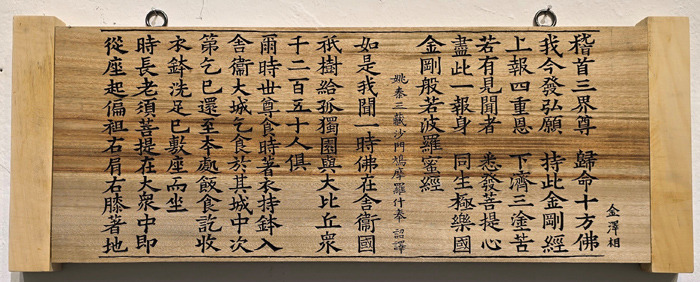 金澤相
稽首三界尊 歸命十方佛
我今發弘願 持此金剛經
上報四重恩 下濟三塗苦
若有見聞者 悉發菩提心
盡此一報身 同生極樂國
金剛般若波羅蜜經
姚秦三藏沙門鳩摩羅什奉 詔譯
如是我聞一時佛在舍衞國
祇樹給孤獨園與大比丘衆
千二百五十人俱
爾時世尊食時著衣持鉢入
舍衞大城乞食於其城中次
第乞已還至本處飯食訖收
衣鉢洗足已敷座而坐
時長老須菩提在大衆中即
從座起偏袒右肩右膝著地